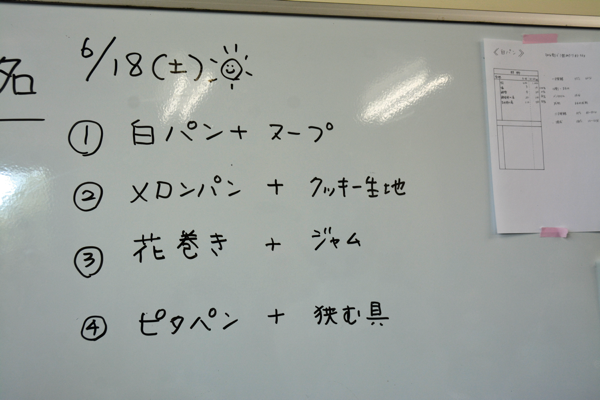 名
6/18(土)
① 白パン + スープ
② メロンパン + クッキー生地
③ 花巻き + ジャム
④ ピタパン + 狭む具
《白パン》